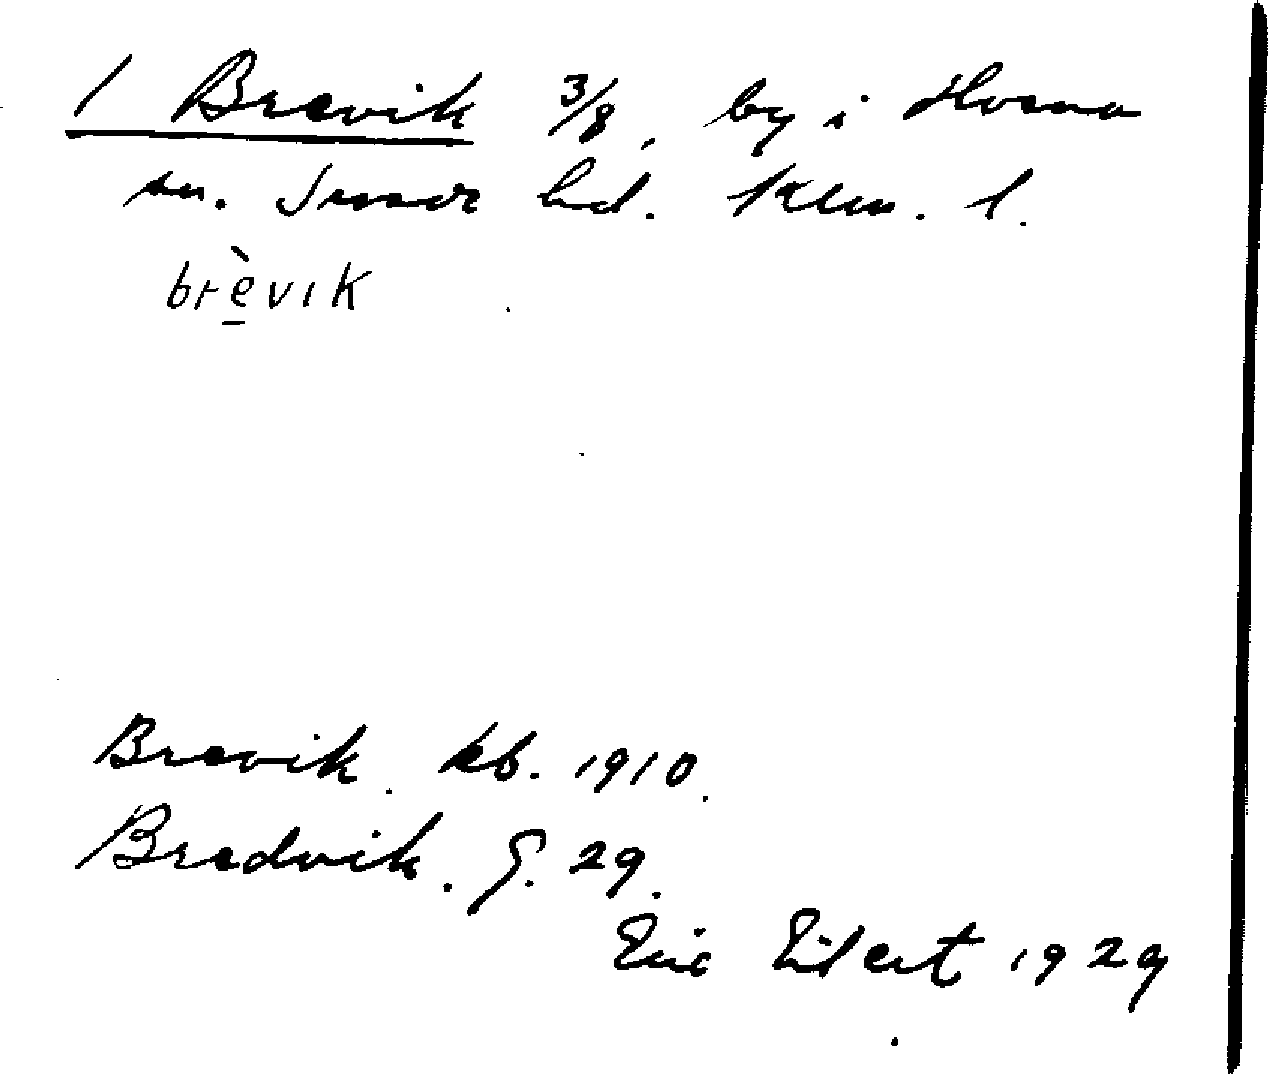 1 Brevik 3/8, by i Horna
sn. Inner hd. Klm. l.
brèvık
Brevik. kb. 1910.
Bredvik. G. 29.
Eric Eilert 1929